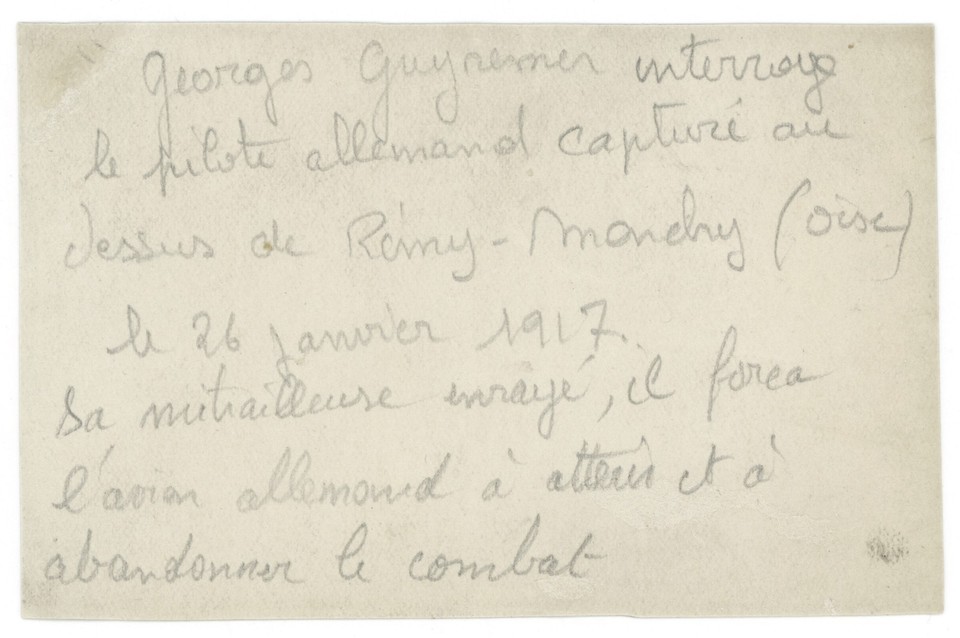 Georges Guynemer interroge
le pilote allemand capturé au
dessus de Rémy-Mondry (Oise)
le 26 janvier 1917.
Sa mitrailleuse enrayé, il força
l'avion allemand à atterir et à
abandonner le combat